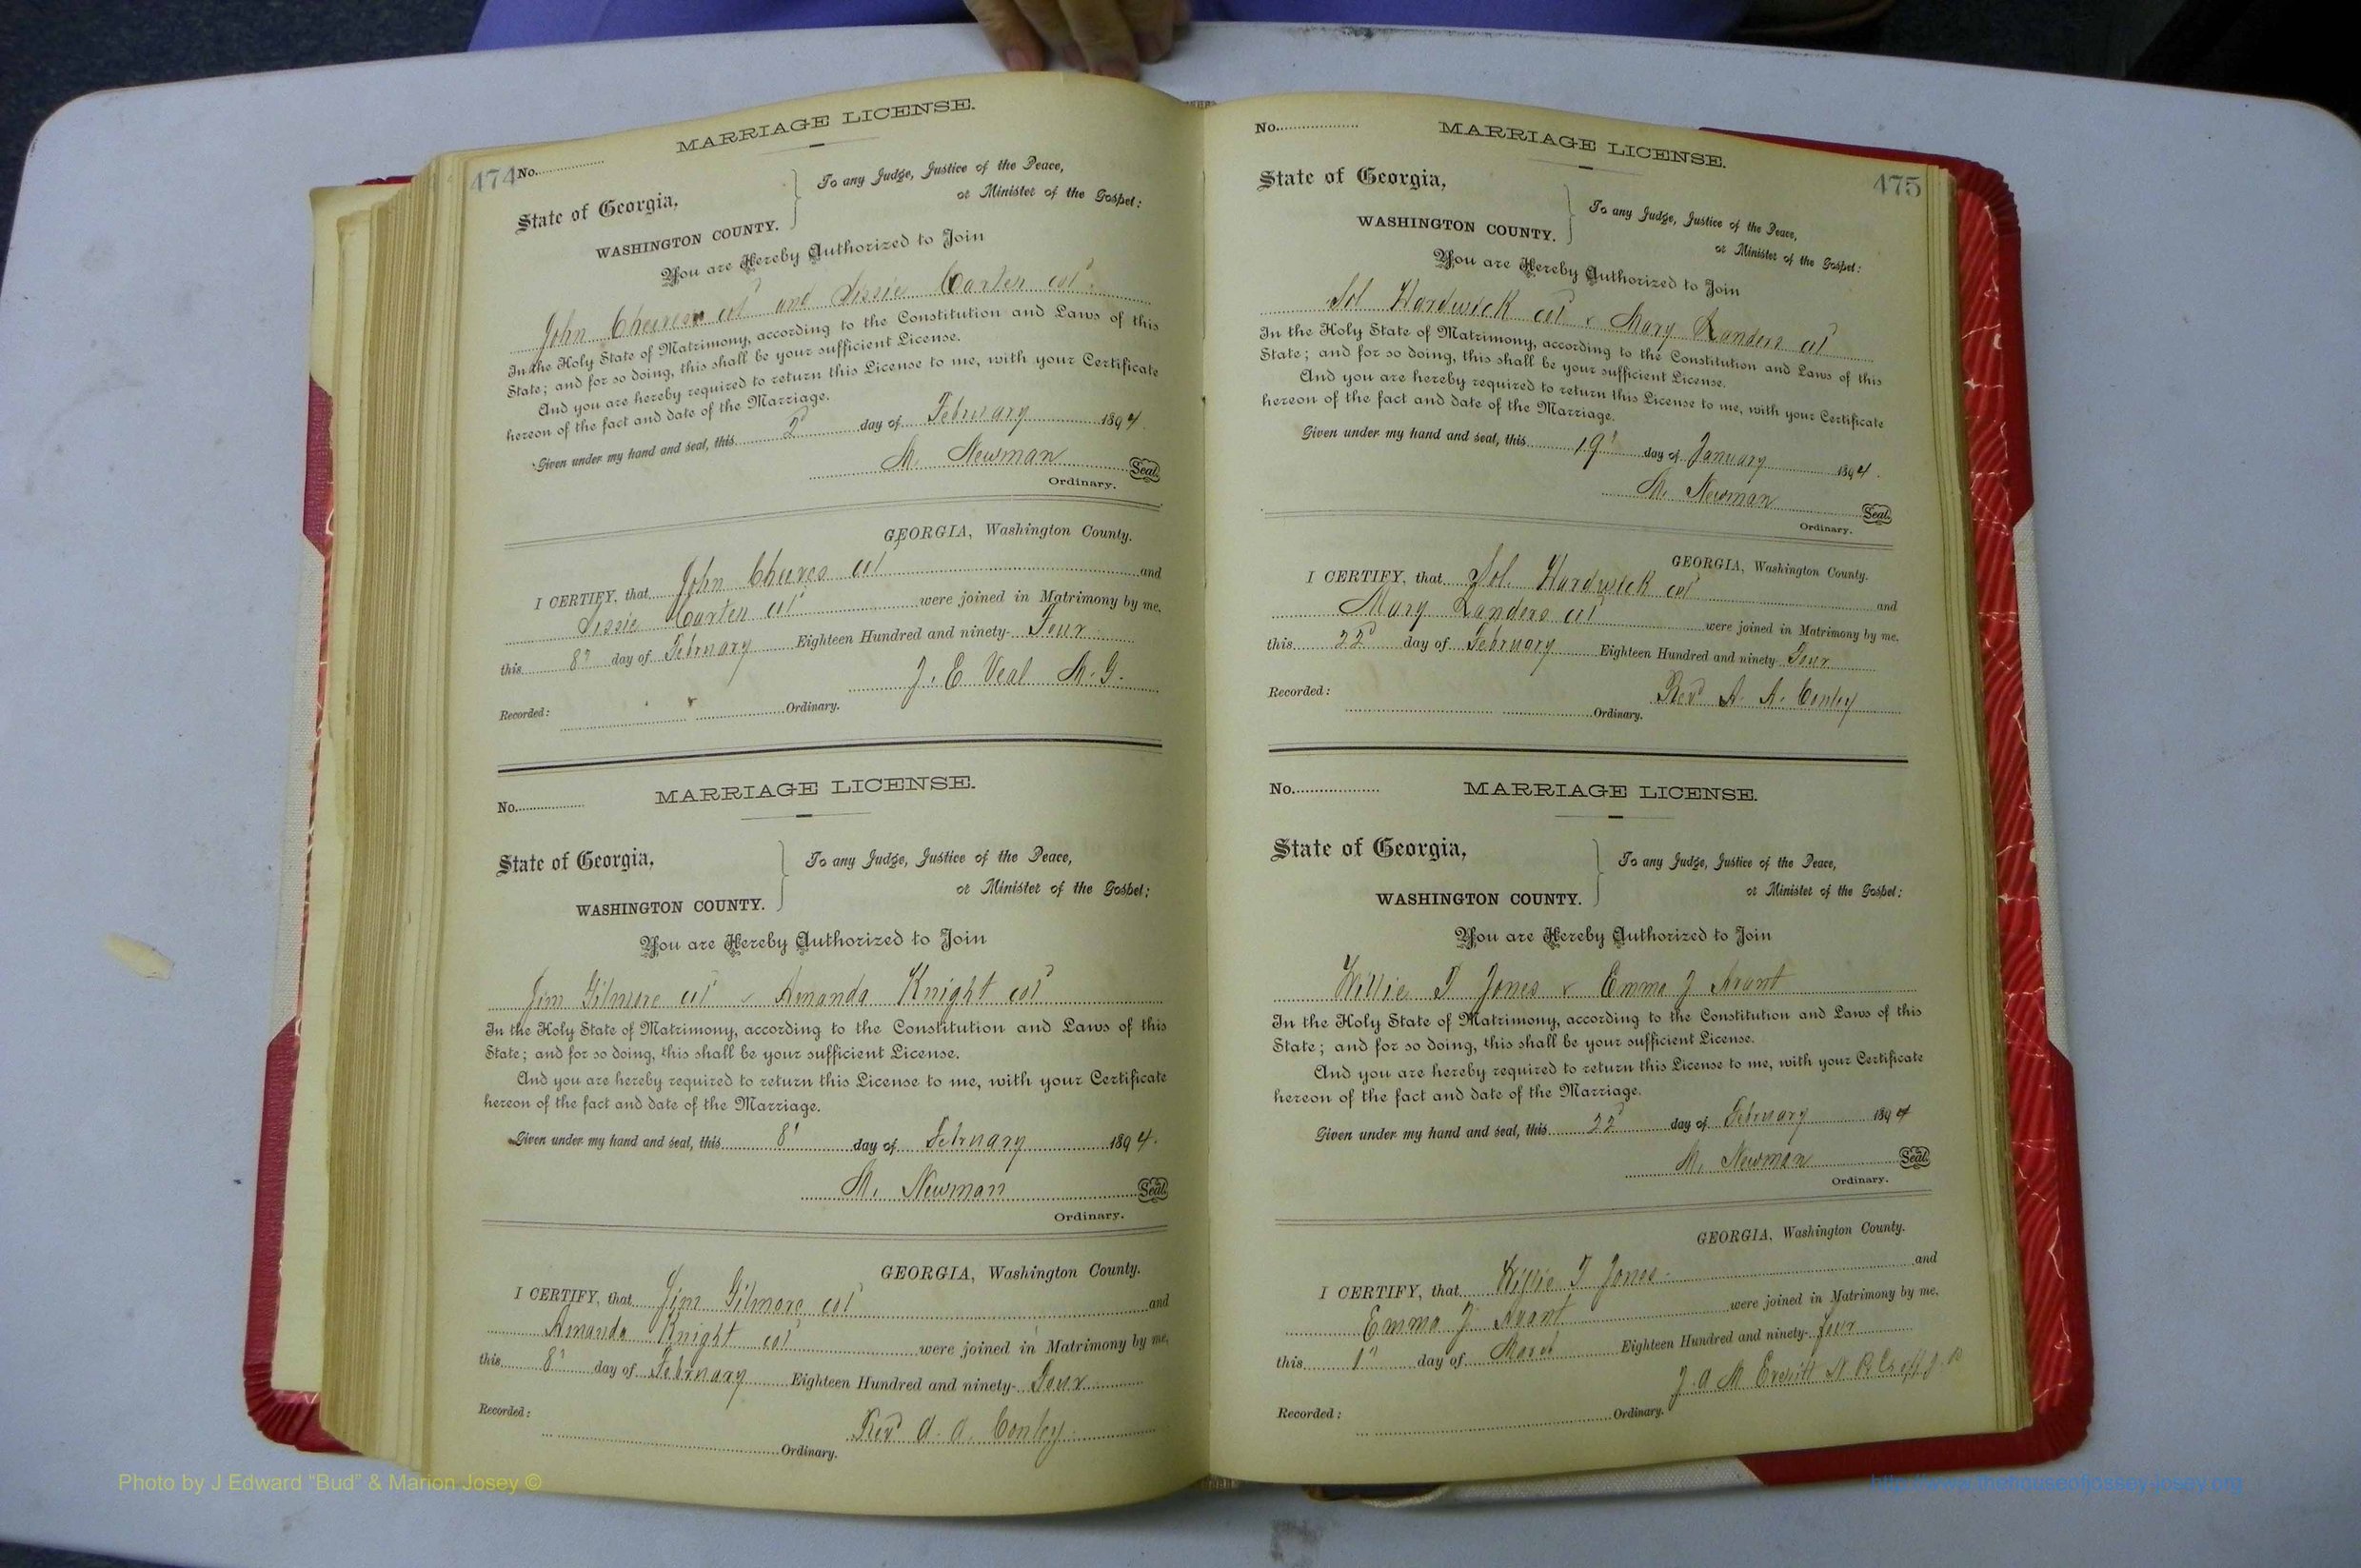 474 No.
MARRIAGE LICENSE.
State of Georgia,
WASHINGTON COUNTY.
To any Judge, Justice of the Peace,
or Minister of the Gospel:
You are Hereby Authorized to Join
John Cheeves col and Sissie Carter col
In the Holy State of Matrimony, according to the Constitution and Laws of this
State; and for so doing, this shall be your sufficient License.
And you are hereby required to return this License to me, with your Certificate
hereon of the fact and date of the Marriage.
Given under my hand and seal, this 2d day of February 1894.
M. Newman Seal
Ordinary.
GEORGIA, Washington County.
I CERTIFY, that John Cheeves col and
Sissie Carter col were joined in Matrimony by me,
this 8th day of February Eighteen Hundred and ninety- Four
J. E Veal M. G.
Recorded: Ordinary.
No.
MARRIAGE LICENSE.
State of Georgia,
WASHINGTON COUNTY.
To any Judge, Justice of the Peace,
or Minister of the Gospel:
You are Hereby Authorized to Join
Jim Gilmore col & Amanda Knight col
In the Holy State of Matrimony, according to the Constitution and Laws of this
State; and for so doing, this shall be your sufficient License.
And you are hereby required to return this License to me, with your Certificate
hereon of the fact and date of the Marriage.
Given under my hand and seal, this 8 day of February 1894.
M. Newman Seal
Ordinary.
GEORGIA, Washington County.
I CERTIFY, that Jim Gilmore col and
Amanda Knight col were joined in Matrimony by me,
this 8 day of February Eighteen Hundred and ninety- Four
Rev A. A. Conley
Recorded: Ordinary.
No.
MARRIAGE LICENSE.
475
State of Georgia,
WASHINGTON COUNTY.
To any Judge, Justice of the Peace,
or Minister of the Gospel:
You are Hereby Authorized to Join
Sol Hardwick col & Mary Landers col
In the Holy State of Matrimony, according to the Constitution and Laws of this
State; and for so doing, this shall be your sufficient License.
And you are hereby required to return this License to me, with your Certificate
hereon of the fact and date of the Marriage.
Given under my hand and seal, this 19 day of January 1894.
M. Newman Seal
Ordinary.
GEORGIA, Washington County.
I CERTIFY, that Sol. Hardwick col and
Mary Landers col were joined in Matrimony by me,
this 22d day of February Eighteen Hundred and ninety- Four
Rev A. A. Conley
Recorded: Ordinary.
No.
MARRIAGE LICENSE.
State of Georgia,
WASHINGTON COUNTY.
To any Judge, Justice of the Peace,
or Minister of the Gospel:
You are Hereby Authorized to Join
Willie T Jones & Emma J Avant
In the Holy State of Matrimony, according to the Constitution and Laws of this
State; and for so doing, this shall be your sufficient License.
And you are hereby required to return this License to me, with your Certificate
hereon of the fact and date of the Marriage.
Given under my hand and seal, this 22 day of February 1894
M. Newman Seal
Ordinary.
GEORGIA, Washington County.
I CERTIFY, that Willie T Jones and
Emma J Avant were joined in Matrimony by me,
this 1 day of March Eighteen Hundred and ninety- four
J. A M Everitt
Recorded: Ordinary.
Photo by J Edward "Bud" & Marion Josey ©
http://www.thehouseofjossey-josey.org